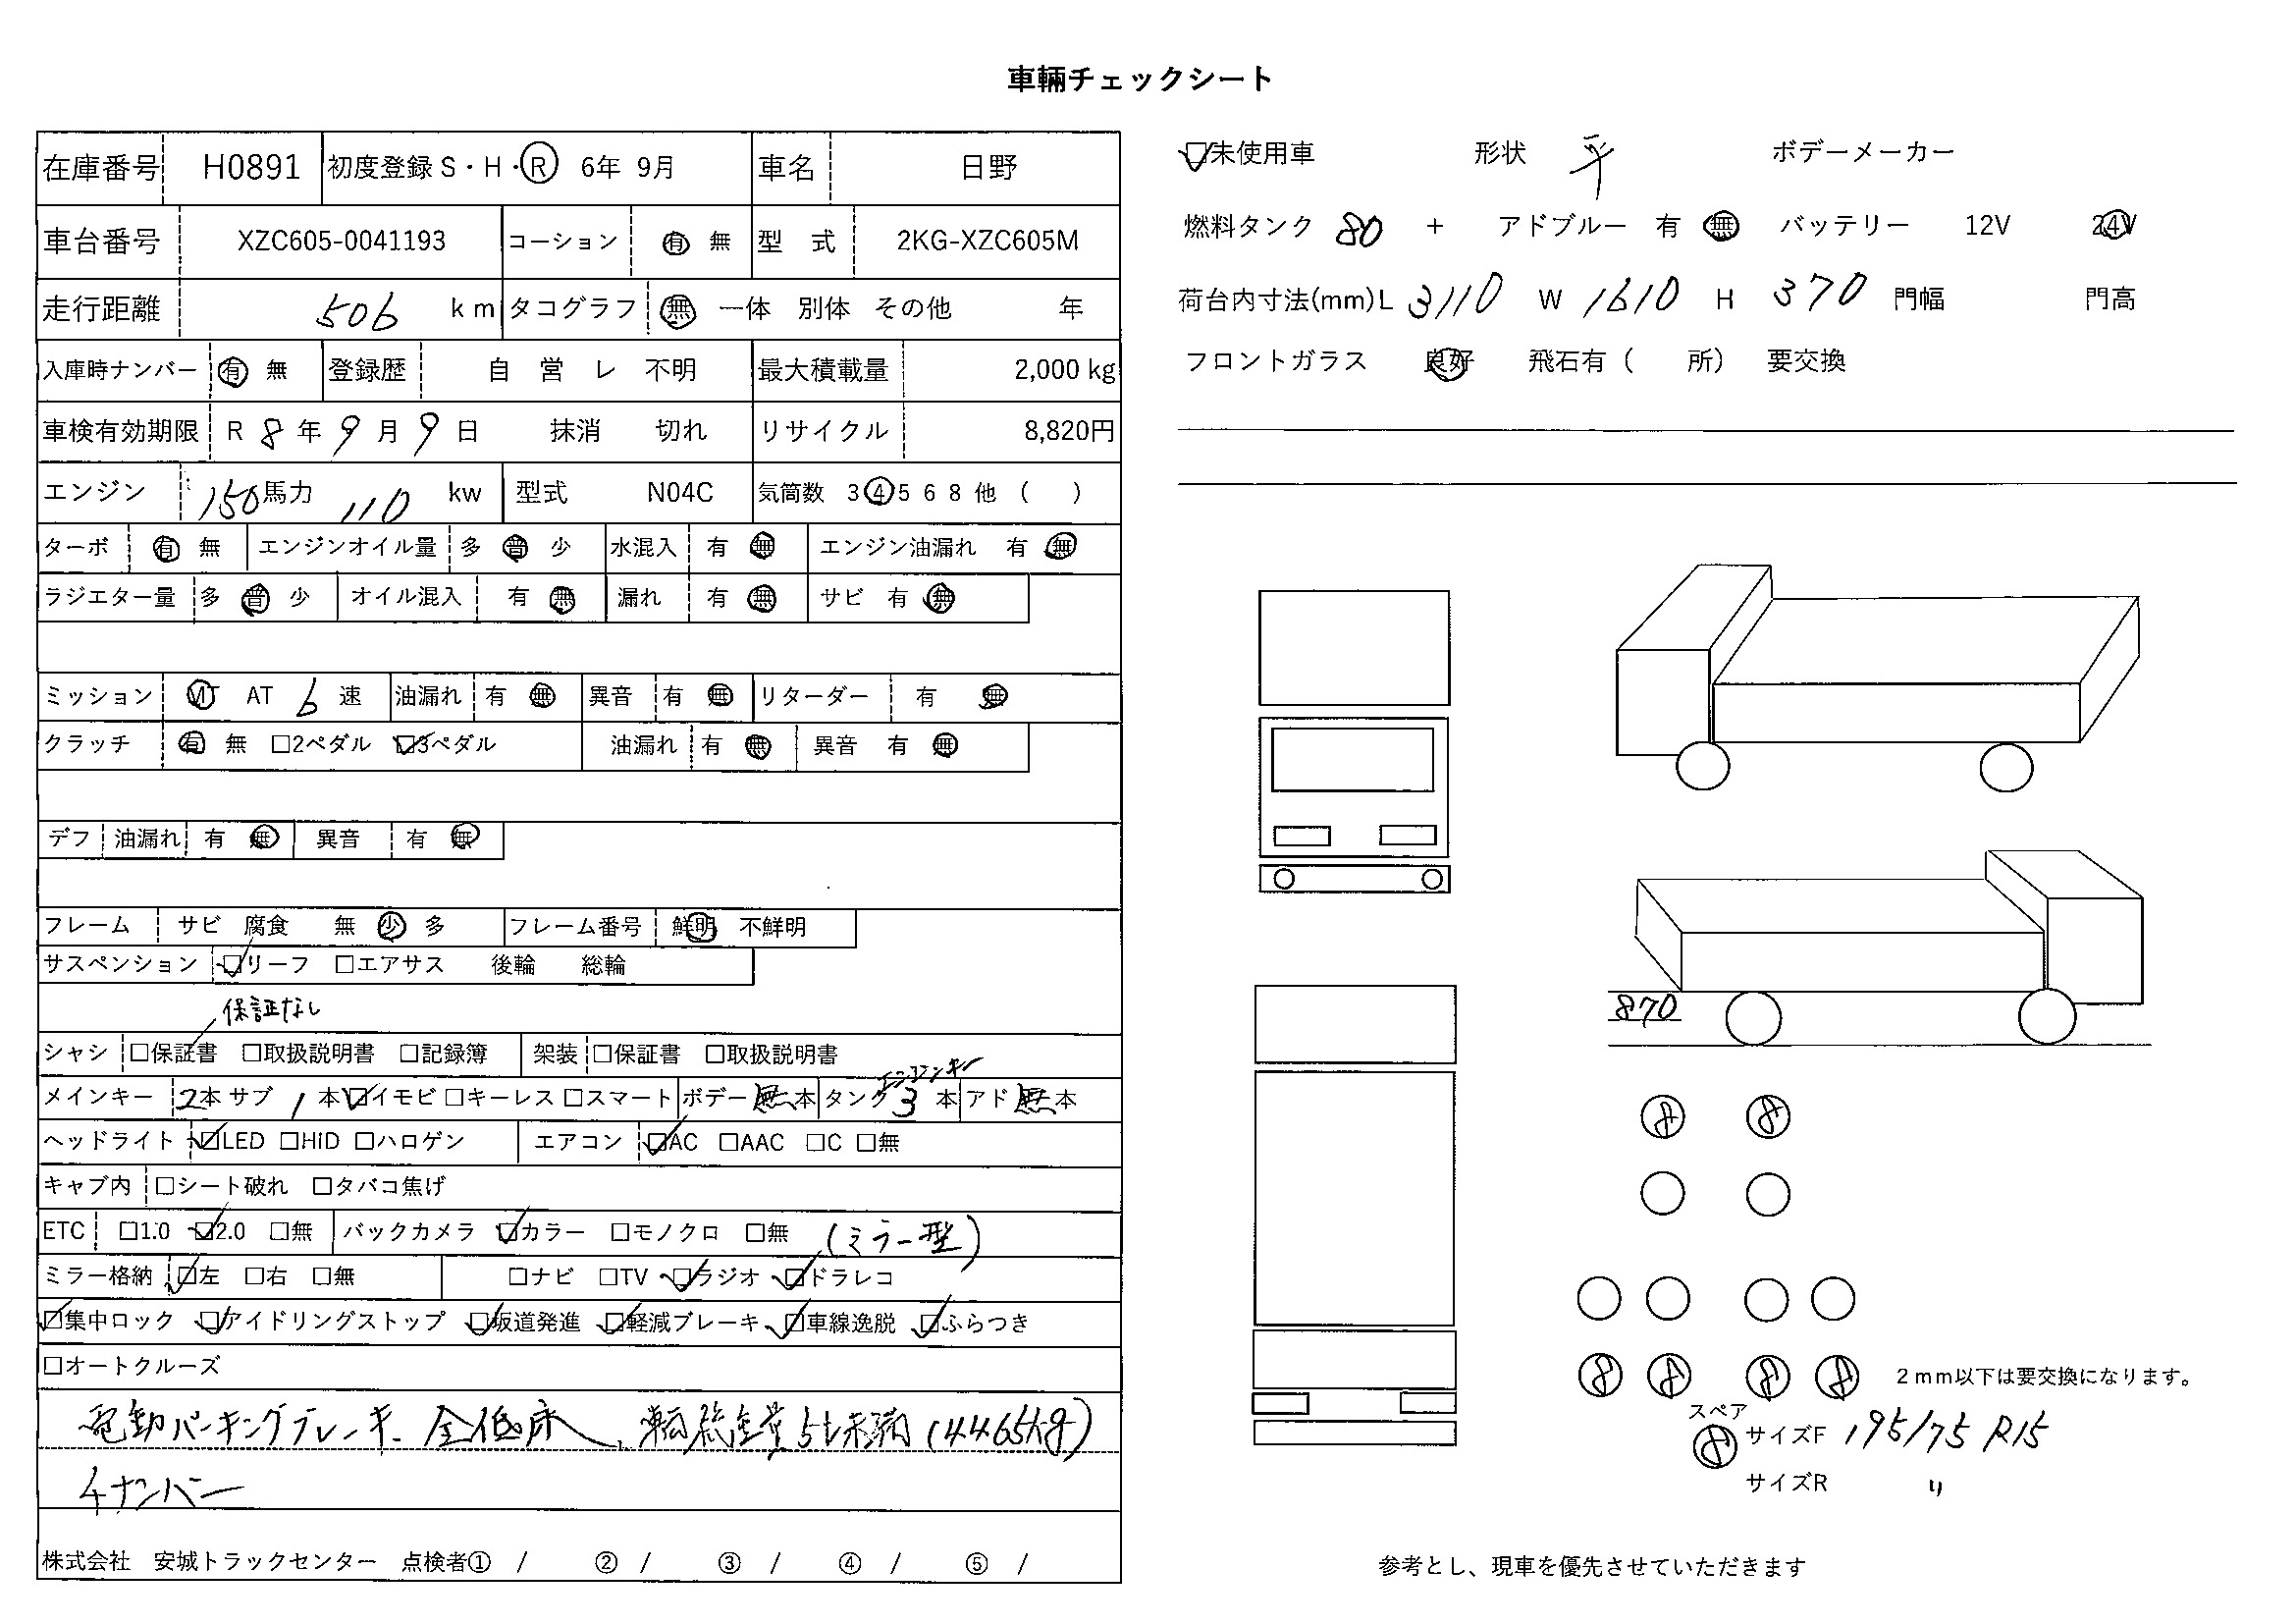 車輛チェックシート
在庫番号 H0891 初度登録 S・H・R 6年 9月 車名 日野
車台番号 XZC605-0041193 コーション 有 無 型 式 2KG-XZC605M
走行距離 506 km タコグラフ 無 一体 別体 その他 年
入庫時ナンバー 有 無 登録歴 自 営 レ 不明 最大積載量 2,000 kg
車検有効期限 R 8 年 9 月 9 日 抹消 切れ リサイクル 8,820円
エンジン 150 馬力 110 kw 型式 N04C 気筒数 3 4 5 6 8 他 ( )
ターボ 有 無 エンジンオイル量 多 普 少 水混入 有 無 エンジン油漏れ 有 無
ラジエター量 多 普 少 オイル混入 有 無 漏れ 有 無 サビ 有 無
ミッション MT AT 6 速 油漏れ 有 無 異音 有 無 リターダー 有 無
クラッチ 有 無 □2ペダル ☑3ペダル 油漏れ 有 無 異音 有 無
デフ 油漏れ 有 無 異音 有 無
フレーム サビ 腐食 無 少 多 フレーム番号 鮮明 不鮮明
サスペンション ☑リーフ □エアサス 後輪 総輪
保証なし
シャシ □保証書 □取扱説明書 □記録簿 架装 □保証書 □取扱説明書
エンジンキー
メインキー 2本 サブ 1 本 ☑イモビ □キーレス □スマート ボデー 無 本 タンク 3 本 アド 無 本
ヘッドライト ☑LED □HID □ハロゲン エアコン ☑AC □AAC □C □無
キャブ内 □シート破れ □タバコ焦げ
ETC □1.0 ☑2.0 □無 バックカメラ ☑カラー □モノクロ □無 (ミラー型)
ミラー格納 ☑左 □右 □無 □ナビ □TV ☑ラジオ ☑ドラレコ
☑集中ロック ☑アイドリングストップ ☑坂道発進 ☑軽減ブレーキ ☑車線逸脱 ☑ふらつき
□オートクルーズ
電動パーキングブレーキ、全低床、車輌総重量5t未満(4465kg)
4ナンバー
株式会社 安城トラックセンター 点検者① / ② / ③ / ④ / ⑤ /
☑未使用車 形状 平 ボデーメーカー
燃料タンク 80 + アドブルー 有 無 バッテリー 12V 24V
荷台内寸法(mm)L 3110 W 1610 H 370 門幅 門高
フロントガラス 良好 飛石有 ( 所) 要交換
870
8 8
8 8 8 8 2mm以下は要交換になります。
スペア
8 サイズF 195/75 R15
サイズR 〃
参考とし、現車を優先させていただきます